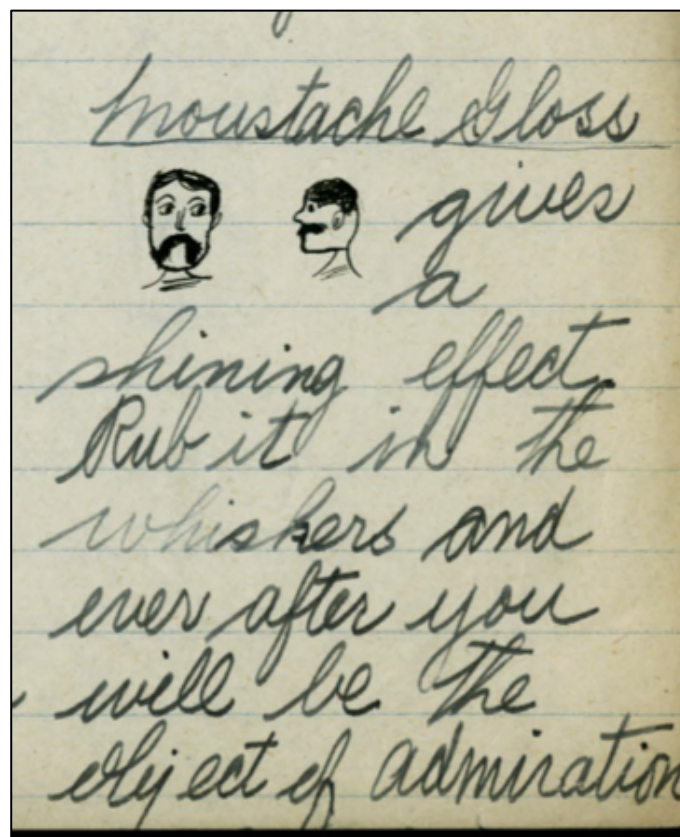 Moustache Gloss
gives
a
shining effect.
Rub it in the
whiskers and
ever after you
will be the
object of admiration